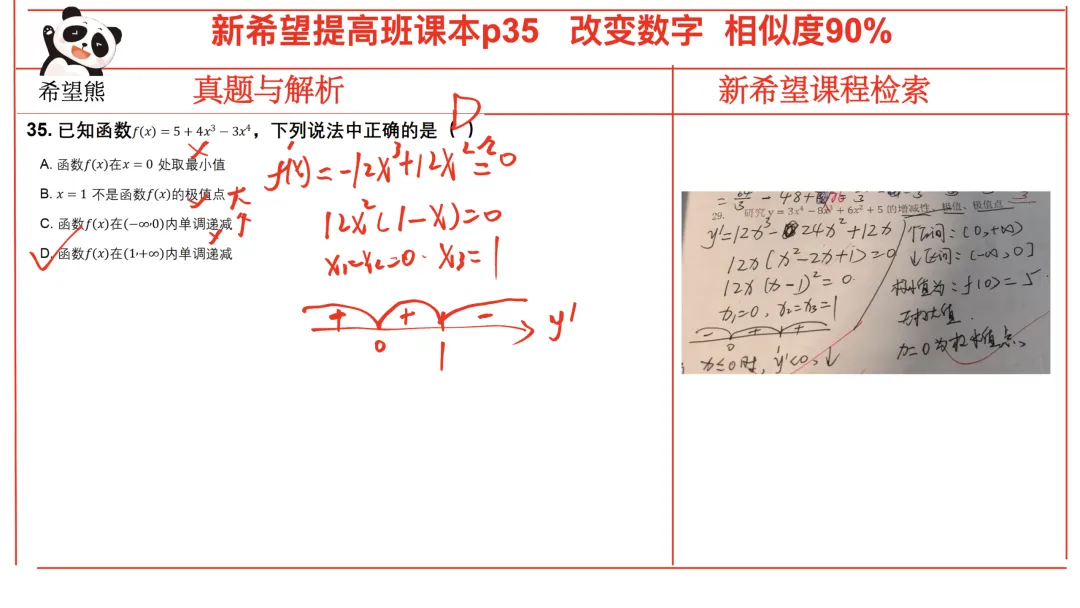 新希望提高班课本p35 改变数字 相似度90%
希望熊
真题与解析
新希望课程检索
35. 已知函数f(x) = 5 + 4x³ − 3x⁴，下列说法中正确的是（ ）
D
A. 函数f(x)在x = 0 处取最小值
B. x = 1 不是函数f(x)的极值点
大
C. 函数f(x)在(−∞,0)内单调递减
D. 函数f(x)在(1,+∞)内单调递减
f'(x) = -12x³+12x² = 0
12x²(1-x)=0
x₁=x₂=0. x₃=1
+ + - y'
0 1
29. 研究 y = 3x⁴ − 8x³ + 6x² + 5 的增减性、极值、极值点
y'=12x³- 24x²+12x
12x(x²-2x+1)=0
12x(x-1)²=0
x₁=0, x₂=x₃=1
- + +
0 1
x≤0时, y'<0, ↓
↑区间: (0,+∞)
↓区间: (-∞,0]
极小值为: f(0)=5
无极大值.
x=0为极小值点